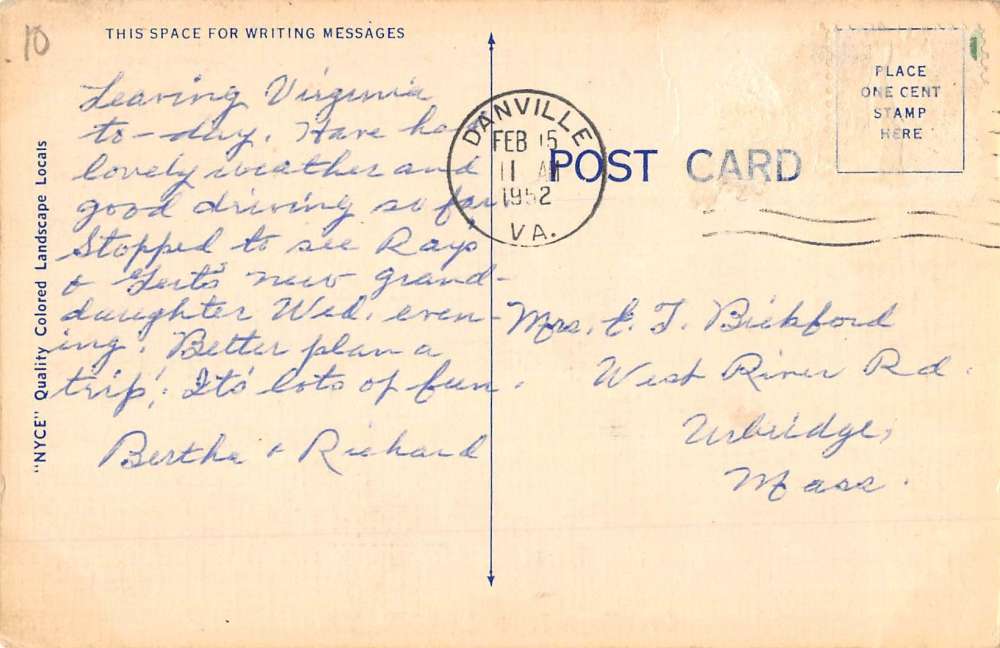 10
THIS SPACE FOR WRITING MESSAGES
Leaving Virginia
to-day. Have had
lovely weather and
good driving so far
Stopped to see Rays
& Gert's new grand-
daughter Wed. even-
ing. Better plan a
trip! It's lots of fun.
Bertha & Richard
"NYCE" Quality Colored Landscape Locals
DANVILLE
FEB 15
11 AM
1952
VA.
POST CARD
PLACE
ONE CENT
STAMP
HERE
Mrs. E. T. Bickford
West River Rd.
Uxbridge,
Mass.